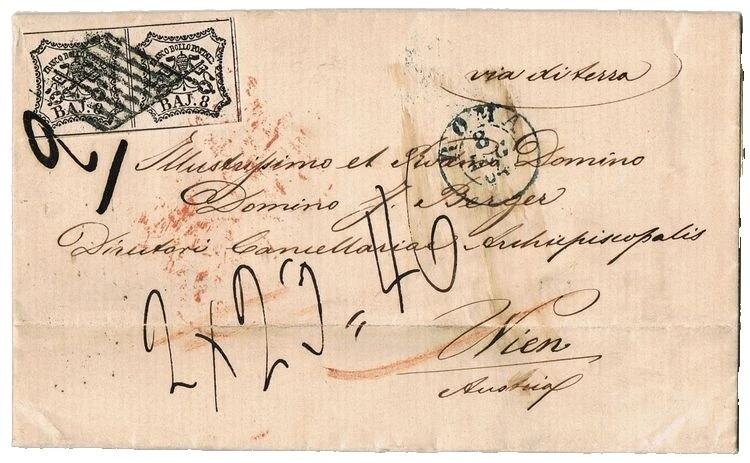 FRANCO BOLLO POSTALE
BAJ. 8
FRANCO BOLLO POSTALE
BAJ. 8
via di terra
ROMA
8
64
2/
Illustrissimo et Domino
Domino J. Berger
Directori Cancellariae Archiepiscopalis
Wien
Austria